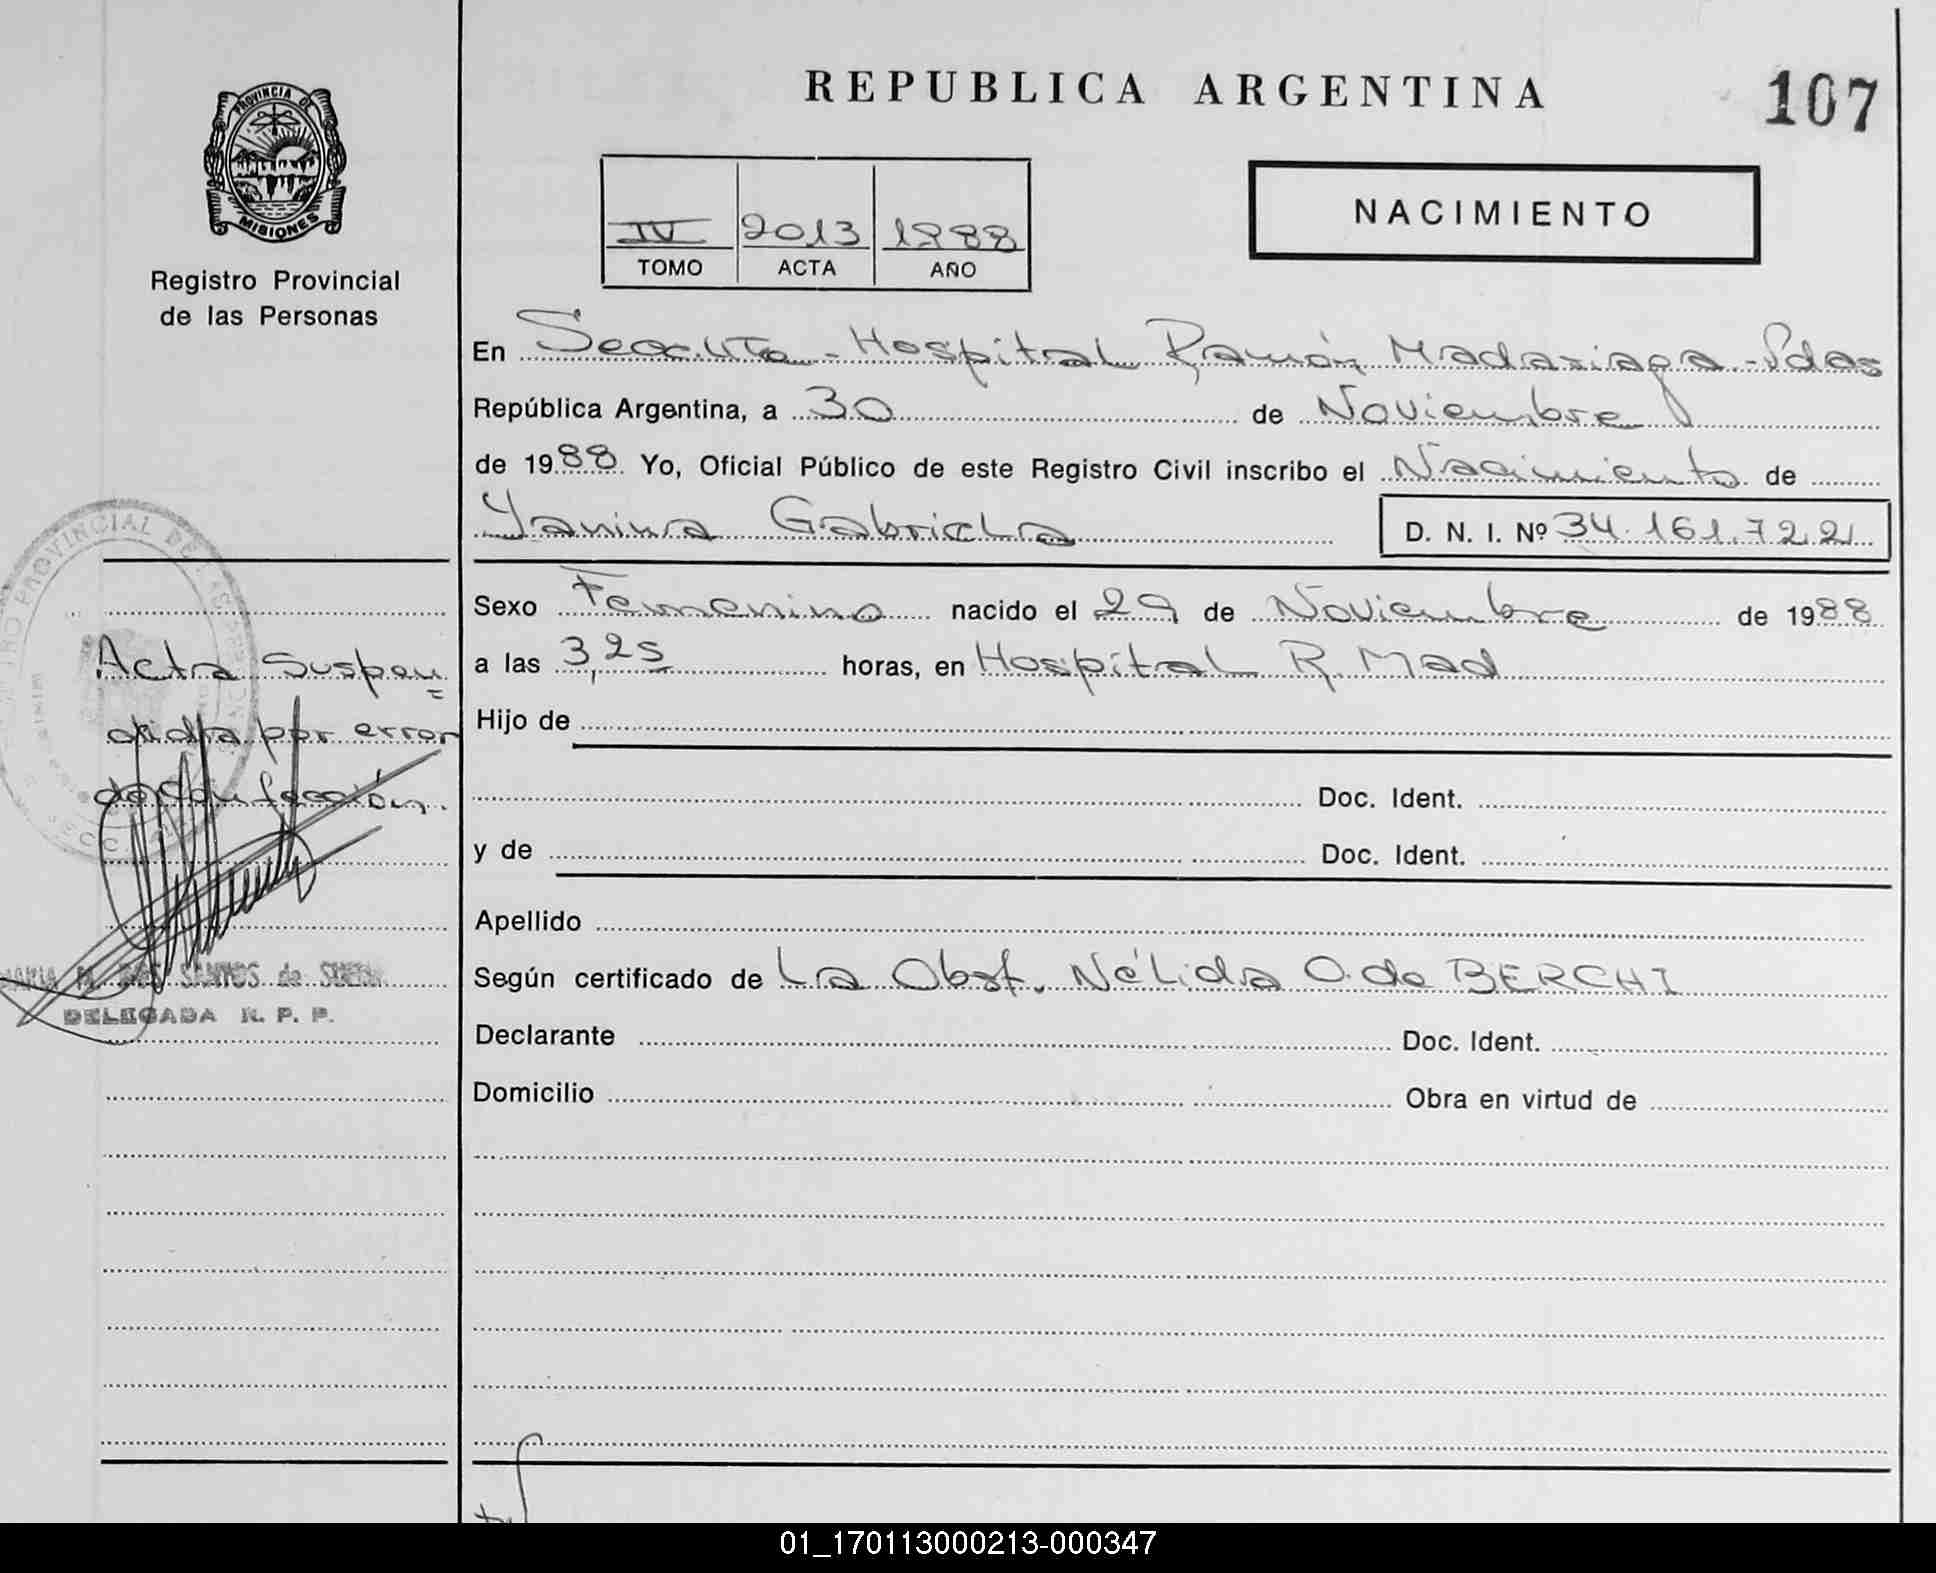 REPUBLICA ARGENTINA
107
PROVINCIA DE
MISIONES
Registro Provincial
de las Personas
IV 2013 1988
TOMO ACTA AÑO
NACIMIENTO
En Secc. Hospital Ramón Madariaga - Pdas
República Argentina, a 30 de Noviembre
de 1988 Yo, Oficial Público de este Registro Civil inscribo el Nacimiento de
Yanina Gabriela D. N. I. Nº 34.161.722
Sexo Femenino nacido el 29 de Noviembre de 1988
a las 3,25 horas, en Hospital R. Mad
Hijo de
Doc. Ident.
y de Doc. Ident.
Apellido
Según certificado de La Obst. Nélida O. de BERCHI
Declarante Doc. Ident.
Domicilio Obra en virtud de
Acta Suspen
dida por error
de confección.
DOS SANTOS de
DELEGADA R. P. P.
01_170113000213-000347